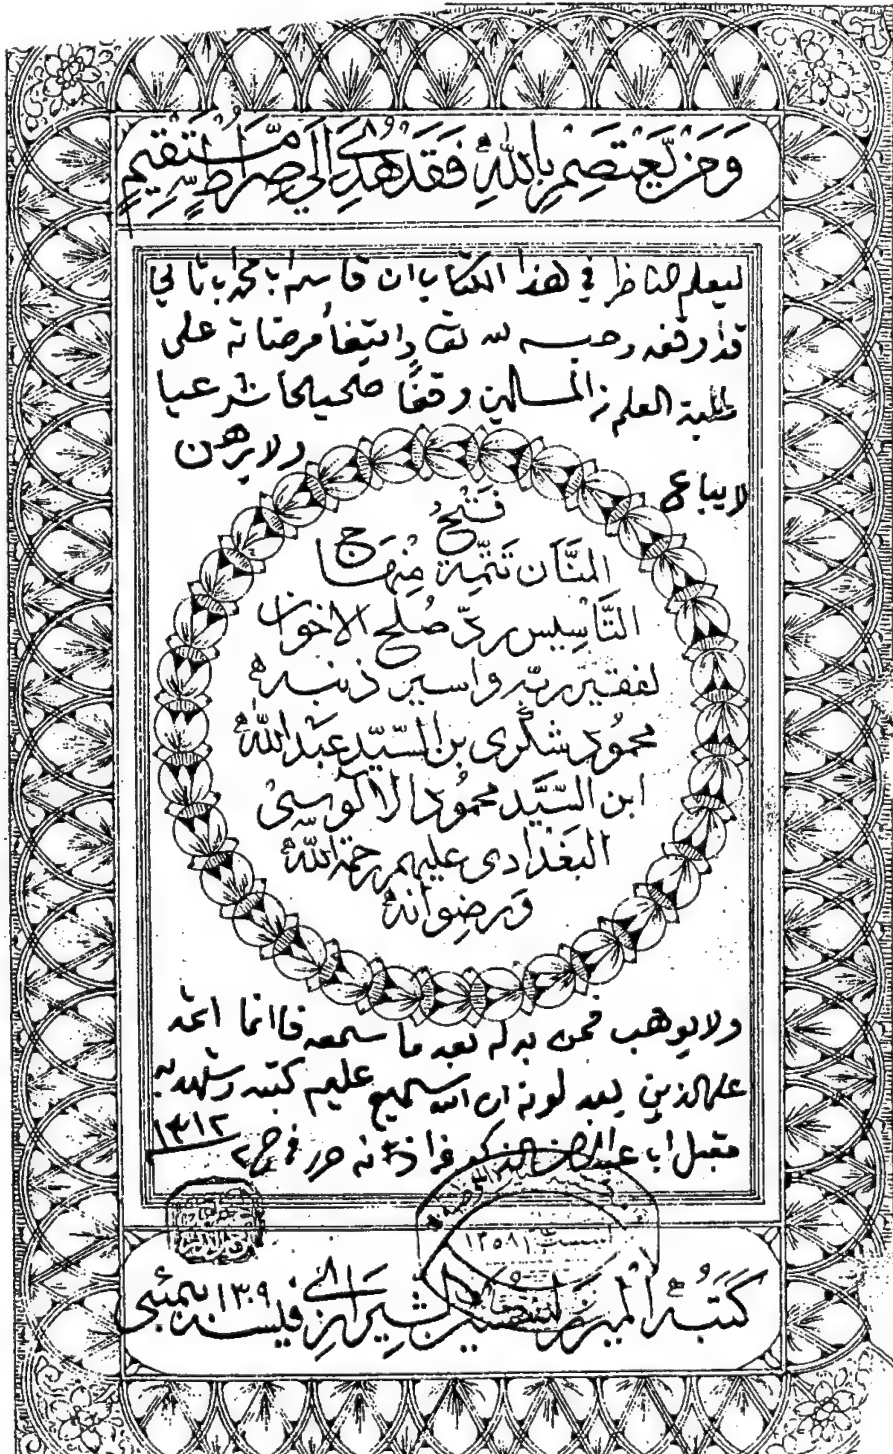 وَمَنْ يَعْتَصِمْ بِاللّٰهِ فَقَدْ هُدِيَ إِلَى صِرَاطٍ مُسْتَقِيمٍ
ليعلم الناظر في هذا الكتاب ان قاسم ابن محمد ابن ثاني
قد وقفه وحبسه لله تعا وابتغا مرضاته على
طلبة العلم من المسلمين وقفًا صحيحا شرعيا
لا يباع ولا يرهن
فَتْحُ
المنَّان تَتمّة مِنهاج
التَّأسيس ردّ صُلح الاخوان
لفقير ربّه واسير ذنبه
محمُود شكرى بن السيّد عبد اللّٰه
ابن السيَّد محمُود الآلوسى
البَغدادى عليهم رحمة اللّٰه
ورضوانه
ولا يوهب فمن بدله بعد ما سمعه فانما اثمه
على الذين يبدلونه ان الله سميع عليم كتبه وشهد به
مقبل ابن عبد الرحمن الذكير في ج ٢ ١٣١٢
سنة ١٣٥٨
كَتَبهُ الميرزا الشيرازى فى سنة ١٣٠٩ بمبئى